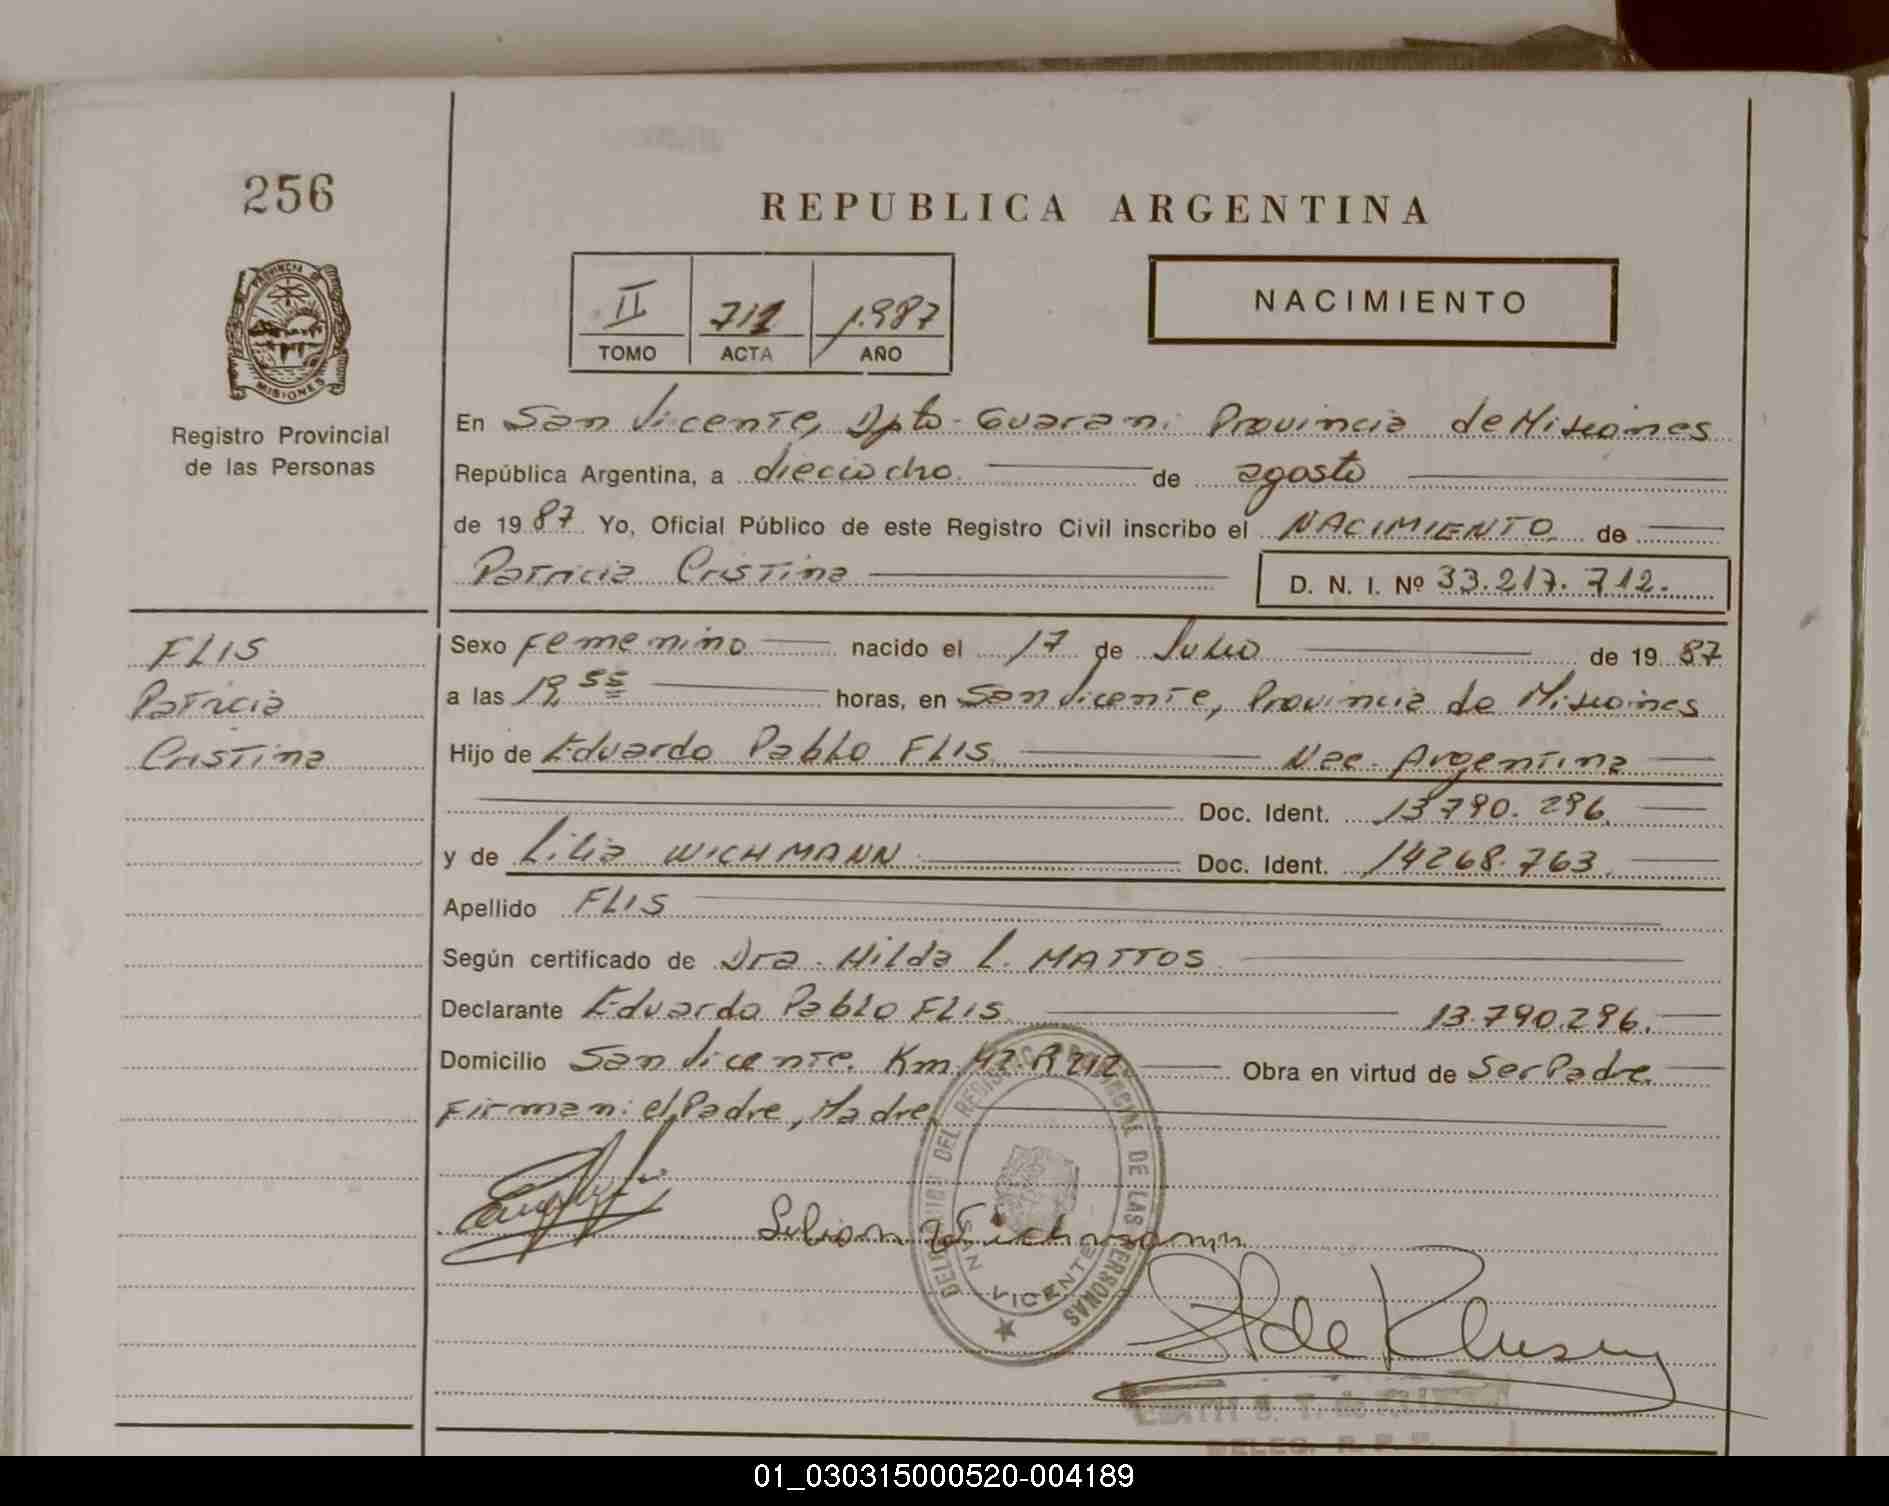 256
REPUBLICA ARGENTINA
II 712 1.987
TOMO ACTA AÑO
NACIMIENTO
PROVINCIA DE
MISIONES
Registro Provincial
de las Personas
En San Vicente, Dpto. Guarani Provincia de Misiones
República Argentina, a dieciocho de agosto
de 1987 Yo, Oficial Público de este Registro Civil inscribo el NACIMIENTO de
Patricia Cristina D. N. I. Nº 33.217.712.
FLIS
Patricia
Cristina
Sexo Femenino nacido el 17 de Julio de 1987
a las 55 horas, en San Vicente, Provincia de Misiones
Hijo de Eduardo Pablo FLIS Nac. Argentina
Doc. Ident. 13.790.296.
y de Lilia WICHMANN Doc. Ident. 14268.763.
Apellido FLIS
Según certificado de Dra. Hilda L. MATTOS
Declarante Eduardo Pablo FLIS 13.790.296.
Domicilio San Vicente. Km. 42. R 212 Obra en virtud de Ser Padre
Firman: el Padre, Madre
Lilian Wichmann
DELEGACION DEL REGISTRO PROVINCIAL DE LAS PERSONAS
SAN VICENTE
DELEG. R. P. P.
01_030315000520-004189